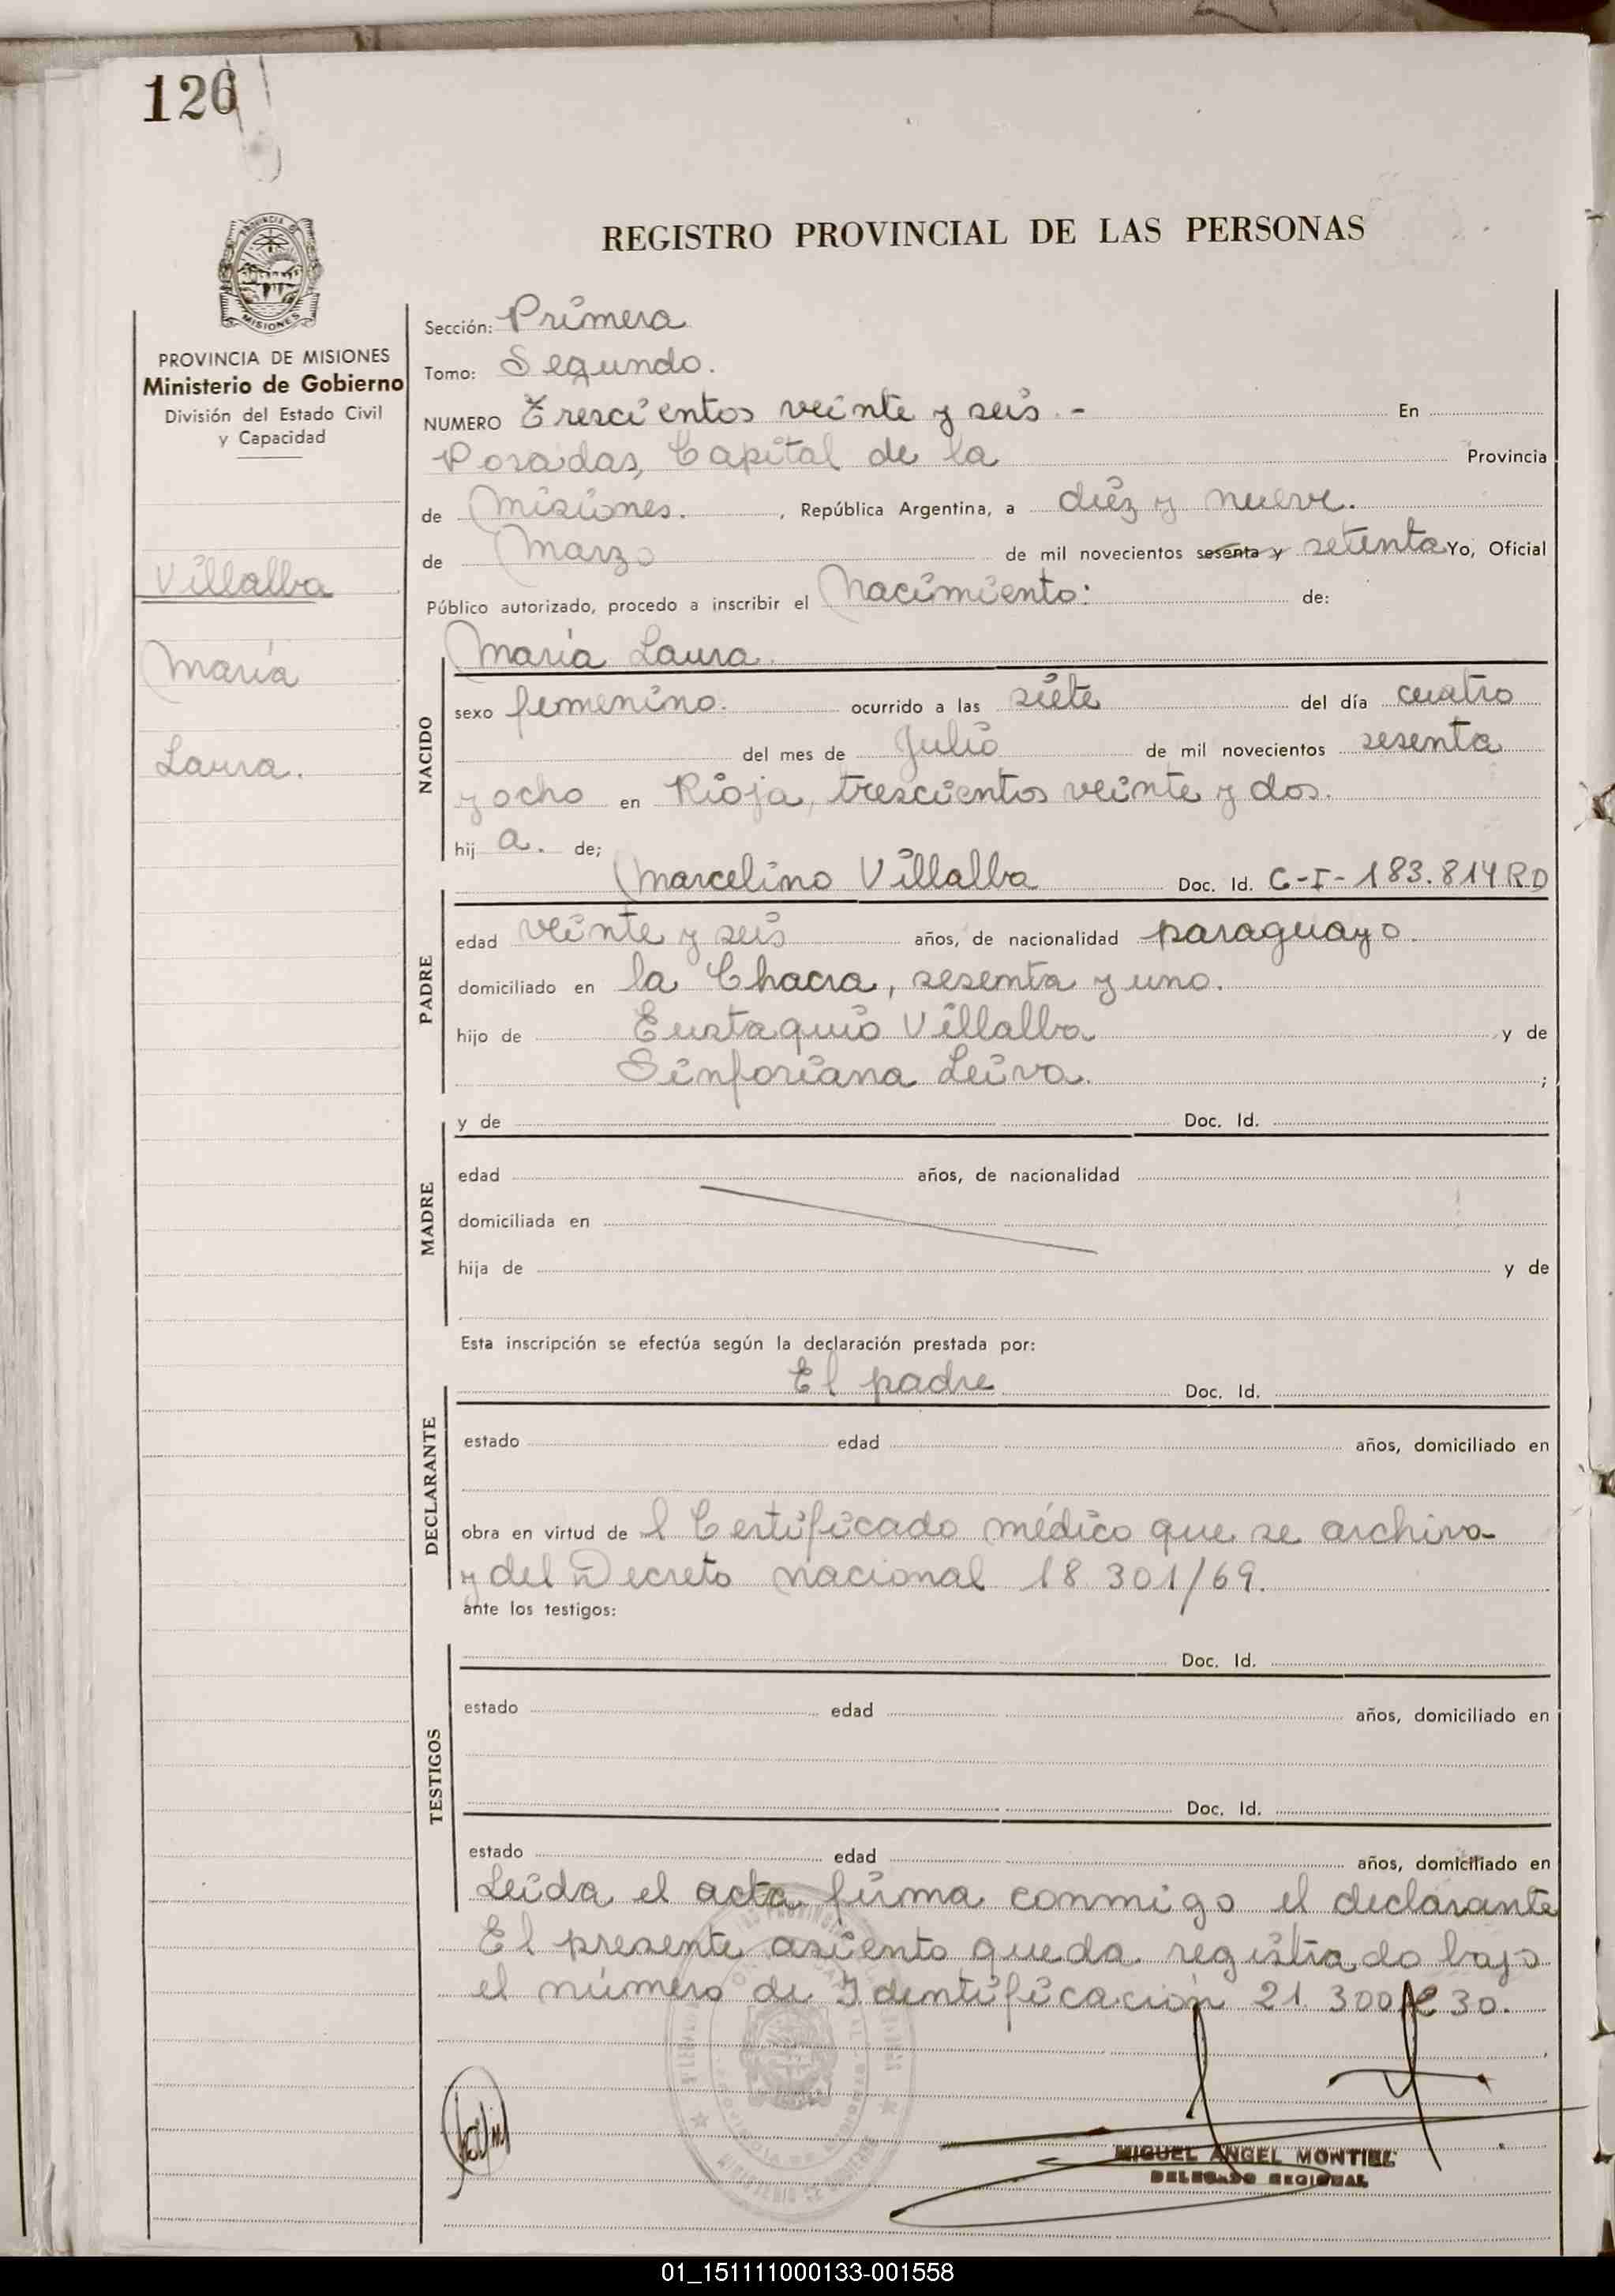 126
REGISTRO PROVINCIAL DE LAS PERSONAS
PROVINCIA DE MISIONES
Ministerio de Gobierno
División del Estado Civil
y Capacidad
Villalba
María
Laura.
Sección: Primera
Tomo: Segundo.
NUMERO Trescientos veinte y seis.- En
Posadas, Capital de la Provincia
de Misiones. , República Argentina, a diéz y nueve.
de Marzo de mil novecientos sesenta y setenta Yo, Oficial
Público autorizado, procedo a inscribir el Nacimiento: de:
María Laura.
NACIDO
sexo femenino. ocurrido a las siete del día cuatro
del mes de Julio de mil novecientos sesenta
y ocho en Rioja, trescientos veinte y dos.
hij a. de;
Marcelino Villalba Doc. Id. C-I-183.814 RD
PADRE
edad veinte y seis años, de nacionalidad paraguayo.
domiciliado en la Chacra, sesenta y uno.
hijo de Eustaquio Villalba y de
Sinforiana Leiva. ;
y de Doc. Id.
MADRE
edad años, de nacionalidad
domiciliada en
hija de y de
Esta inscripción se efectúa según la declaración prestada por:
El padre Doc. Id.
DECLARANTE
estado edad años, domiciliado en
obra en virtud de l Certificado médico que se archiva
y del Decreto nacional 18.301/69.
ante los testigos:
Doc. Id.
TESTIGOS
estado edad años, domiciliado en
Doc. Id.
estado edad años, domiciliado en
Leida el acta firma conmigo el declarante
El presente asiento queda registrado bajo
el número de Identificación 21.300 30.
MIGUEL ANGEL MONTIEL
DELEGADO REGIONAL
01_151111000133-001558